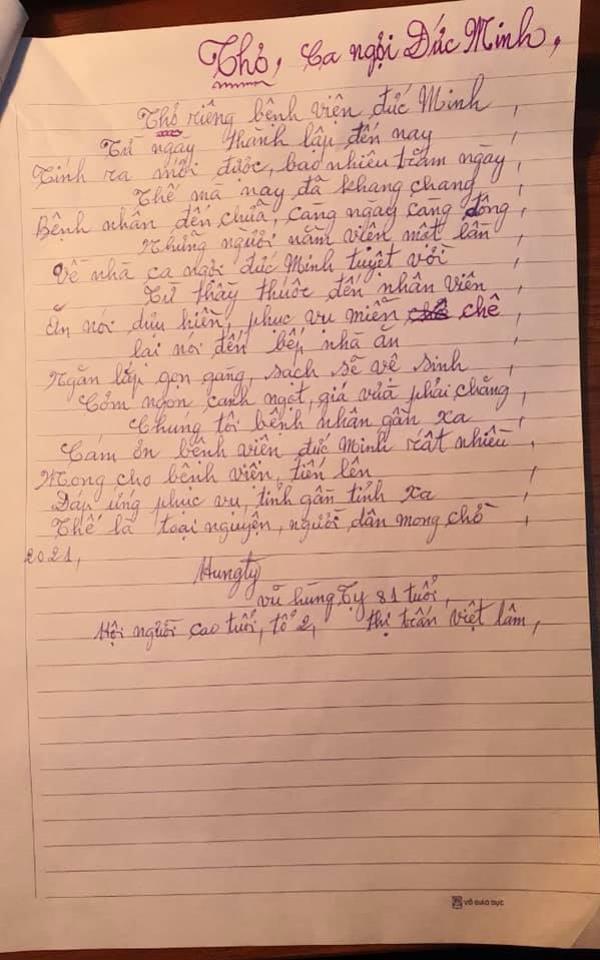 Thơ, Ca ngợi Đức Minh,
Thơ riêng bệnh viện đức Minh,
Từ ngày thành lập đến nay,
Tính ra mới được, bao nhiêu trăm ngày,
Thế mà nay đã khang chang,
Bệnh nhân đến chữa, càng ngày càng đông,
Những người nằm viện một lần,
Về nhà ca ngợi đức Minh tuyệt vời,
Từ thầy thuốc đến nhân viên,
Ăn nói dựu hiền, phục vụ miễn chê,
lại nói đến bếp nhà ăn,
Ngăn lắp gọn gàng, sạch sẽ vệ sinh,
Cơm ngon canh ngọt, giá vừa phải chăng,
Chúng tôi bệnh nhân gần xa,
Cám ơn bệnh viện đức Minh rất nhiều,
Mong cho bệnh viện, tiến lên,
Đáp ứng phục vụ, tỉnh gần tỉnh xa,
Thế là toại nguyện, người dân mong chờ,
2021,
Hungty
vũ hùng Tỵ 81 tuổi,
Hội người cao tuổi, tổ 2, thị trấn việt lâm,
VỞ GIÁO DỤC